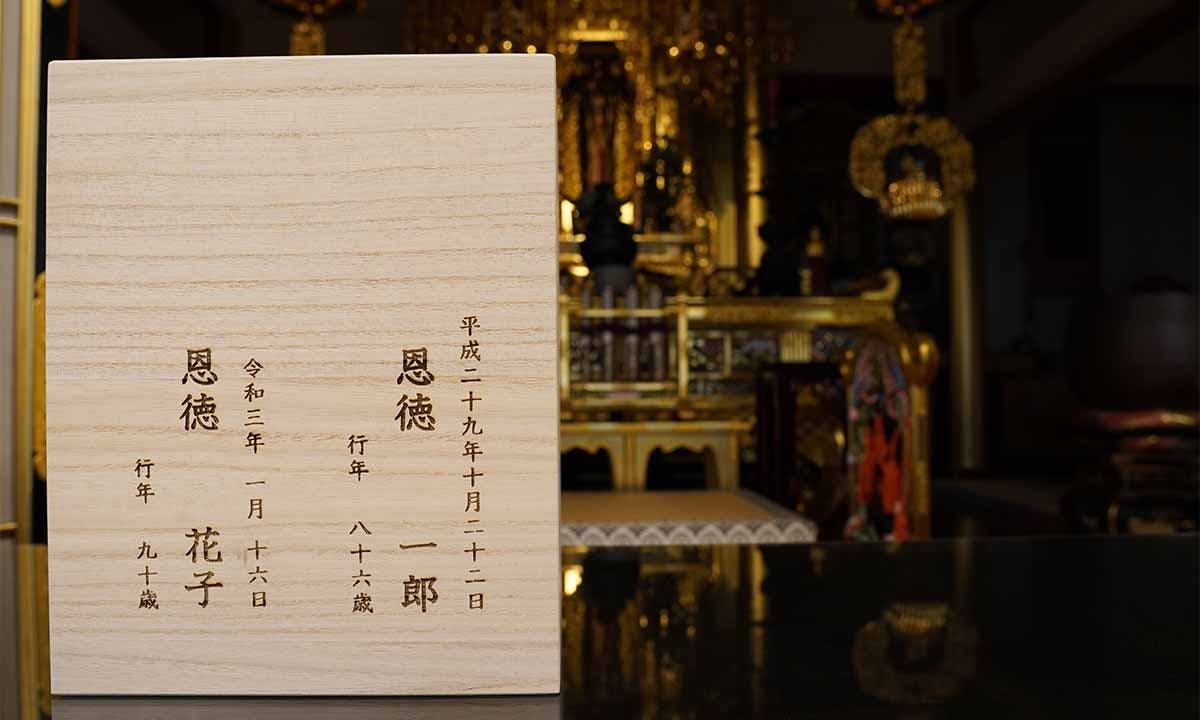 平成二十九年十月二十二日
恩徳 一郎
行年 八十六歳
令和三年 一月 十六日
恩徳 花子
行年 九十歳